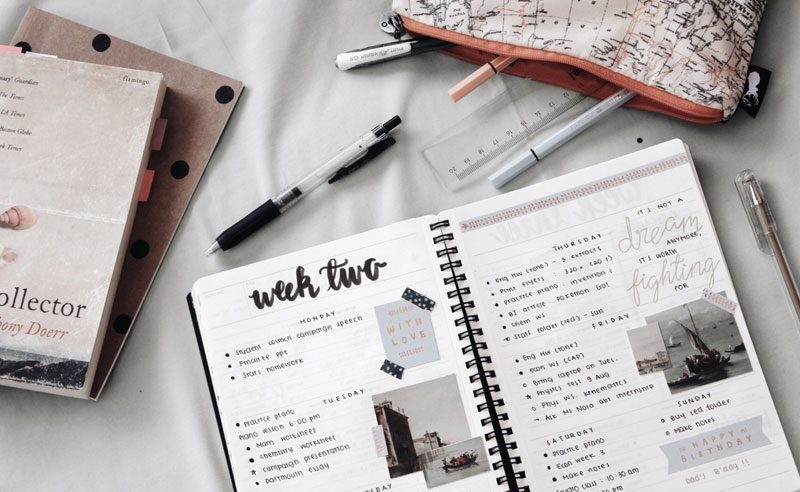 ury' Guardian
The Times
LA Times
Boston Globe
rk Times
flamingo
ollector
hony Doerr
week two
MONDAY
student council campaign speech
Finalite ppt
Stats homework
WITH
LOVE
TUESDAY
Practice piano
Piano lesson 6:00 pm
Math worksheet
Chemistry worksheet
Campaign presentation
Dartmouth essay
THURSDAY
Eng HW (tone) - 3 extracts
Print flyers : 320 x (20)
Practice piano : invention 1
BI article : Pokemon Go!
Chem WS
Stats folder (red) - Sun
IT'S NOT A
dream
ANYMORE,
IT'S WORTH
fighting
FOR
FRIDAY
Eng HW (tone)
Econ WS (CAP)
Bring laptop on Tues.
Physics test 9 Aug
Phys WS: Kinematics
Ask Ms Nora abt internship
SATURDAY
Practice piano
Econ week 3
Make notes
Studio class : 10:30 am
SUNDAY
Buy red folder
Make notes
HAPPY
BIRTHDAY
Dad's B'day !!
20 19 18 17 16 15 14 13 12